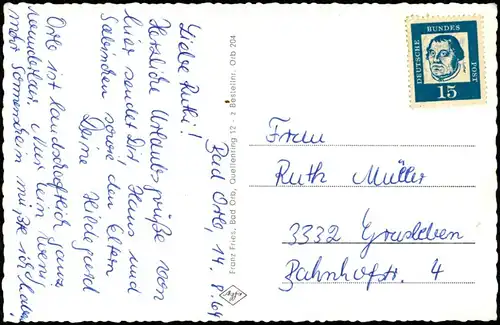 Bad Orb, 14.8.64
Liebe Ruthi!
Herzliche Urlaubsgrüße von
hier sendet Dir, Hans und
Sabinchen sowie den Eltern
Deine Hildegard
Orb ist landschaftlich ganz
wunderbar. Nur ein wenig
mehr Sonnenschein müßte ich haben.
Franz Fries, Bad Orb, Quellenring 12 - z Bestellnr. Orb 204
Agfa
DEUTSCHE
BUNDES
POST
15
Frau
Ruth Müller
3332 Grasleben
Bahnhofstr. 4